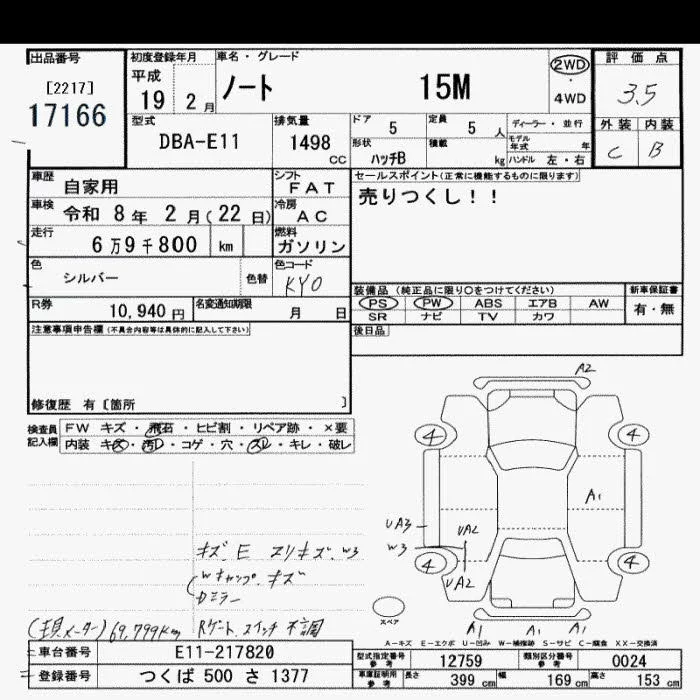 出品番号
[2217]
17166
初度登録年月
平成
19 2月
車名・グレード
ノート 15M
2WD
・
4WD
評価点
3.5
外装 内装
C B
型式
DBA-E11
排気量
1498 CC
ドア 5
定員 5 人
ディーラー・並行
モデル年式 年
形状 ハッチB
積載 kg
ハンドル 左・右
車歴 自家用
シフト FAT
セールスポイント(正常に機能するものに限ります)
売りつくし!!
車検 令和 8年 2月(22日)
冷房 AC
走行 6万9千800 km
燃料 ガソリン
色 シルバー 色替
色コード KY0
装備品 (純正品に限り○をつけてください)
PS PW ABS エアB AW
SR ナビ TV カワ
新車保証書
有・無
R券 10,940円
名変通知期限 月 日
後日品
注意事項申告欄 (不具合内容等は具体的に記入して下さい)
修復歴 有〔箇所 〕
検査員記入欄
FW キズ・飛石・ヒビ割・リペア跡・×要
内装 キズ・汚レ・コゲ・穴・スレ・キレ・破レ
A2
4 4
A1
UA3
UA2
W3
UA2
4 4
スペア
A1 A1 A1
キズ、E スリキズ、W3
Wキャップ、キズ
Dミラー
(現メーター) 69,799km Rゲート、スイッチ 不調
A-キズ E-エクボ U-凹み W-補修跡 S-サビ C-腐食 XX-交換済
車台番号 E11-217820
型式指定番号 参考 12759
類別区分番号 参考 0024
登録番号 つくば 500 さ 1377
車庫証明用 参考 長さ 399 cm 幅 169 cm 高さ 153 cm